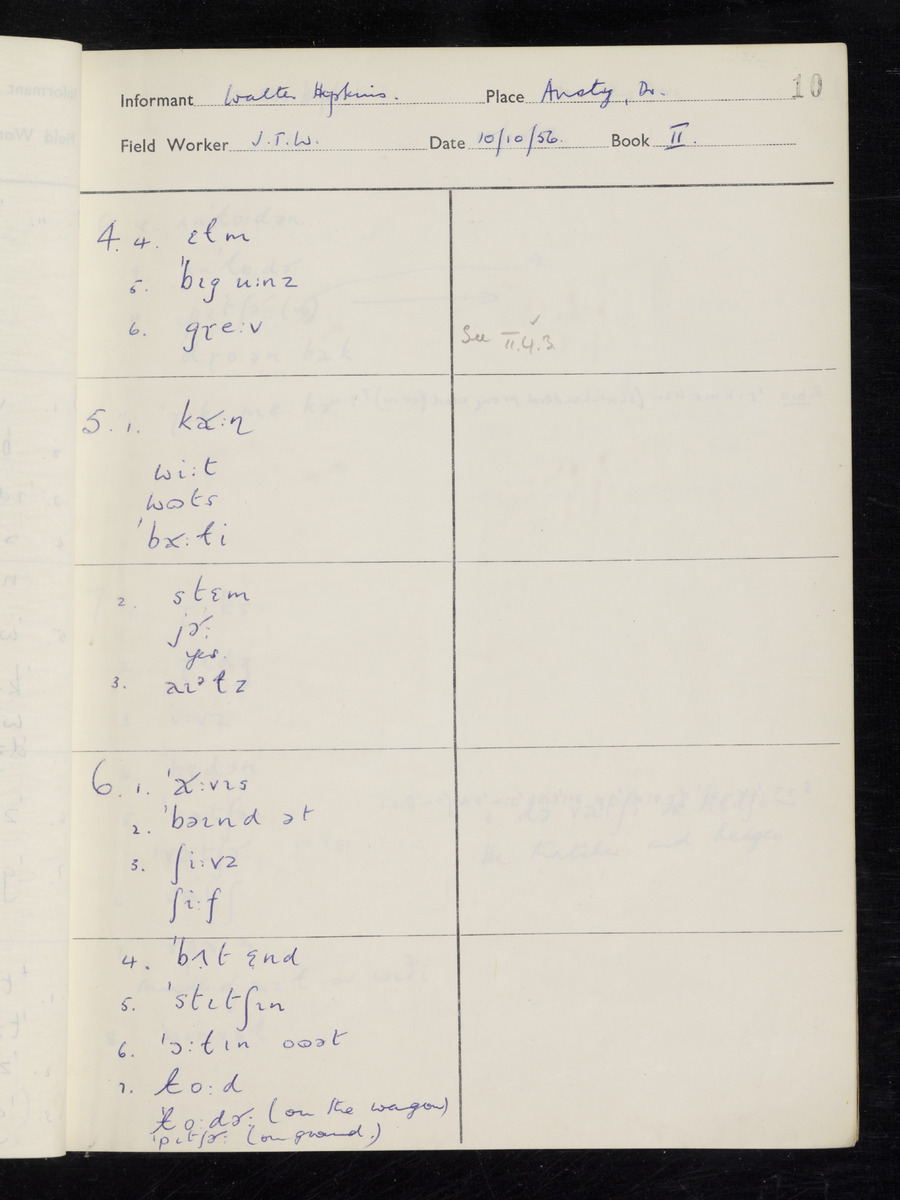 10
Informant Walter Hopkins. Place Ansty, Do.
Field Worker J.T.W. Date 10/10/56. Book II.
4. 4. ɛɫm
5. ˈbɪg u:nz
6. gɽe:v
See II.4.3.
5. 1. kɚ:ɳ
wi:t
wʊts
ˈbɚ:ɫi
2. stɛm
jɚ:
yes.
3. aɪᵊɫz
6. 1. ˈɚ:vɪs
2. ˈbəɪnd ət
3. ʃi:vz
ʃi:f
4. ˈbʌt ɛnd
5. ˈstɪtʃɪn
6. ˈɔ:ɫɪn oʊət
7. ɫo:d
ˈɫo:dɚ: (on the wagon)
ˈpɪtʃɚ: (on ground.)